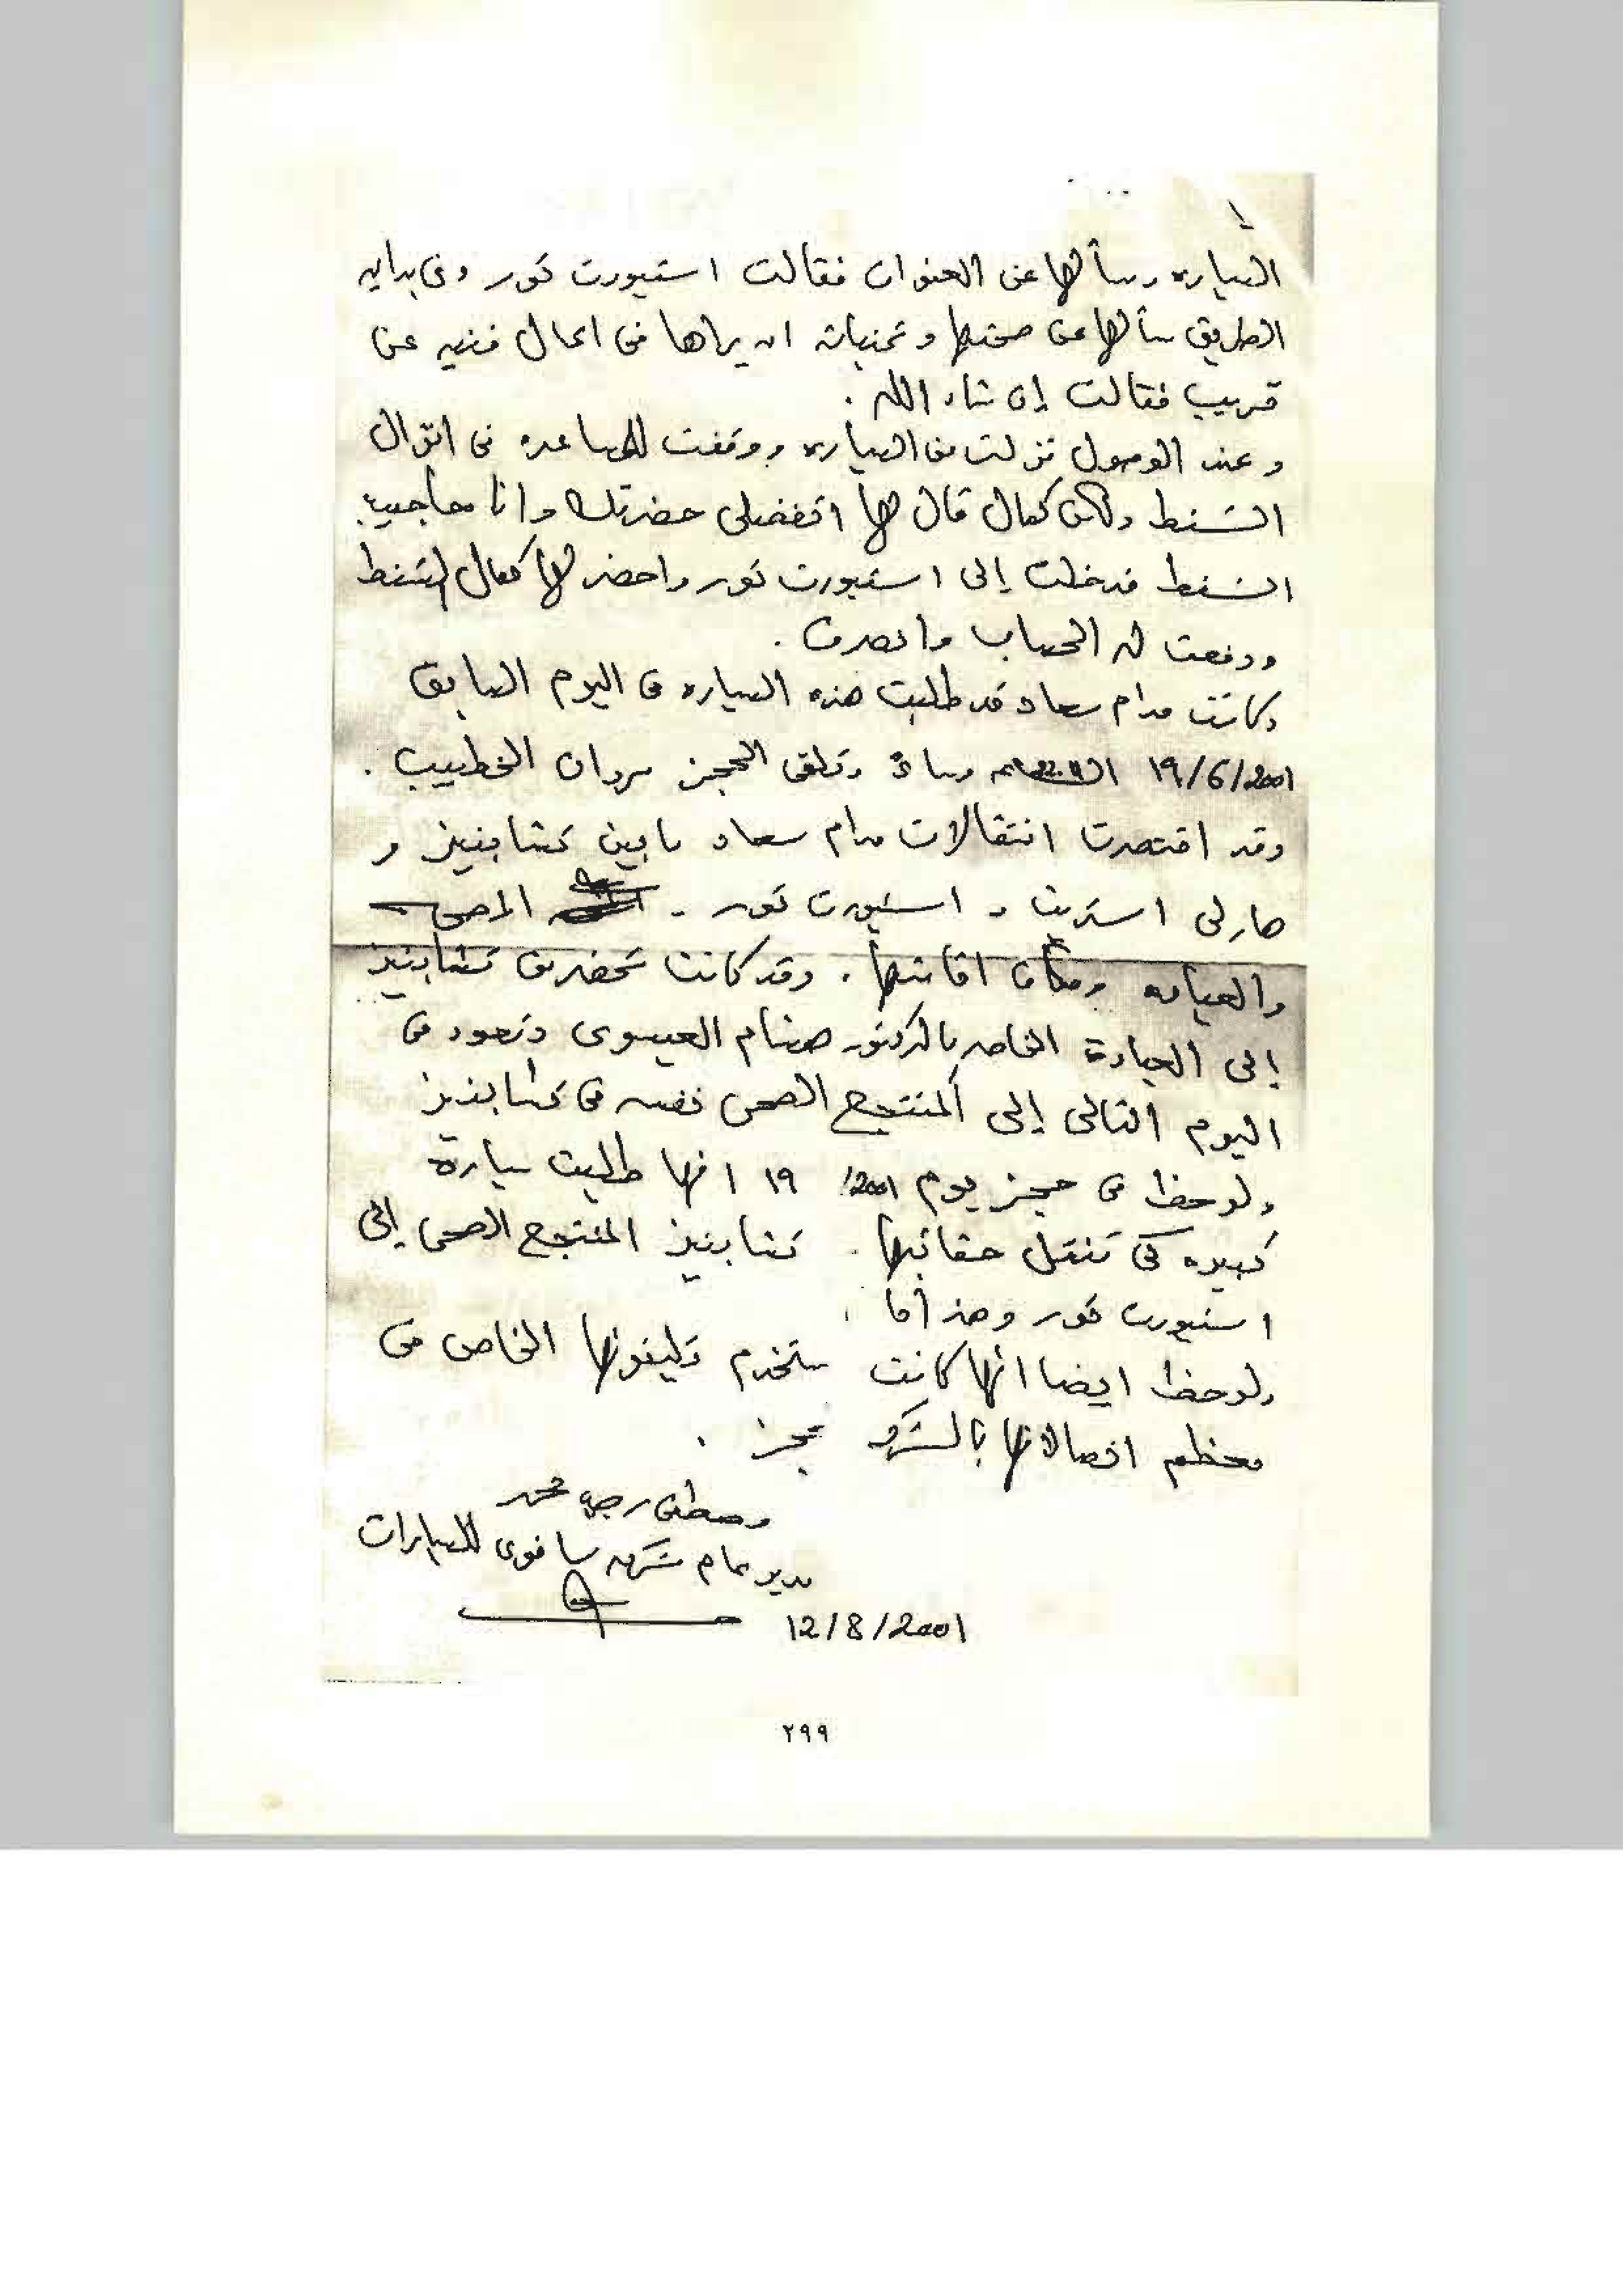 السياره وسألها عن العنوان فقالت استيورت تور وفى بدايه
الطريق سألها عن صحتها وتمنياته ان يراها فى اعمال فنيه عن
قريب فقالت إن شاء الله .
وعند الوصول نزلت من السياره ووقفت للمساعده فى انزال
الشنط ولكن كمال قال لها اتفضلى حضرتك وانا هاجيب
الشنط فدخلت إلى استيورت تور واحضر لها كمال الشنط
ودفعت له الحساب وانصرف .
وكانت مدام سعاد قد طلبت هذه السياره فى اليوم السابق
١٩/6/2001 مساءً وتلقى الحجز مروان الخطيب .
وقد اقتصرت انتقالات مدام سعاد ما بين تشابنيز و
هارلى استريت و استيورت تور -
والعياده ومكان اقامتها . وقد كانت تحضر من تشابنيز
إلى العيادة الخاصه بالدكتور هشام العيسوى وتعود فى
اليوم التالى إلى المنتجع الصحى نفسه فى تشابنيز
ولوحظ فى حجز يوم ١٩ /2001 انها طلبت سيارة
كبيره كى تنقل حقائبها . تشابنيز المنتجع الصحى إلى
استيورت تور
ولوحظ ايضا انها كانت ستخدم تليفونها الخاص فى
معظم اتصالاتها بالشركه
مصطفى رجب محمد
مدير عام شركه سافوى للسيارات
12/8/2001
٢٩٩